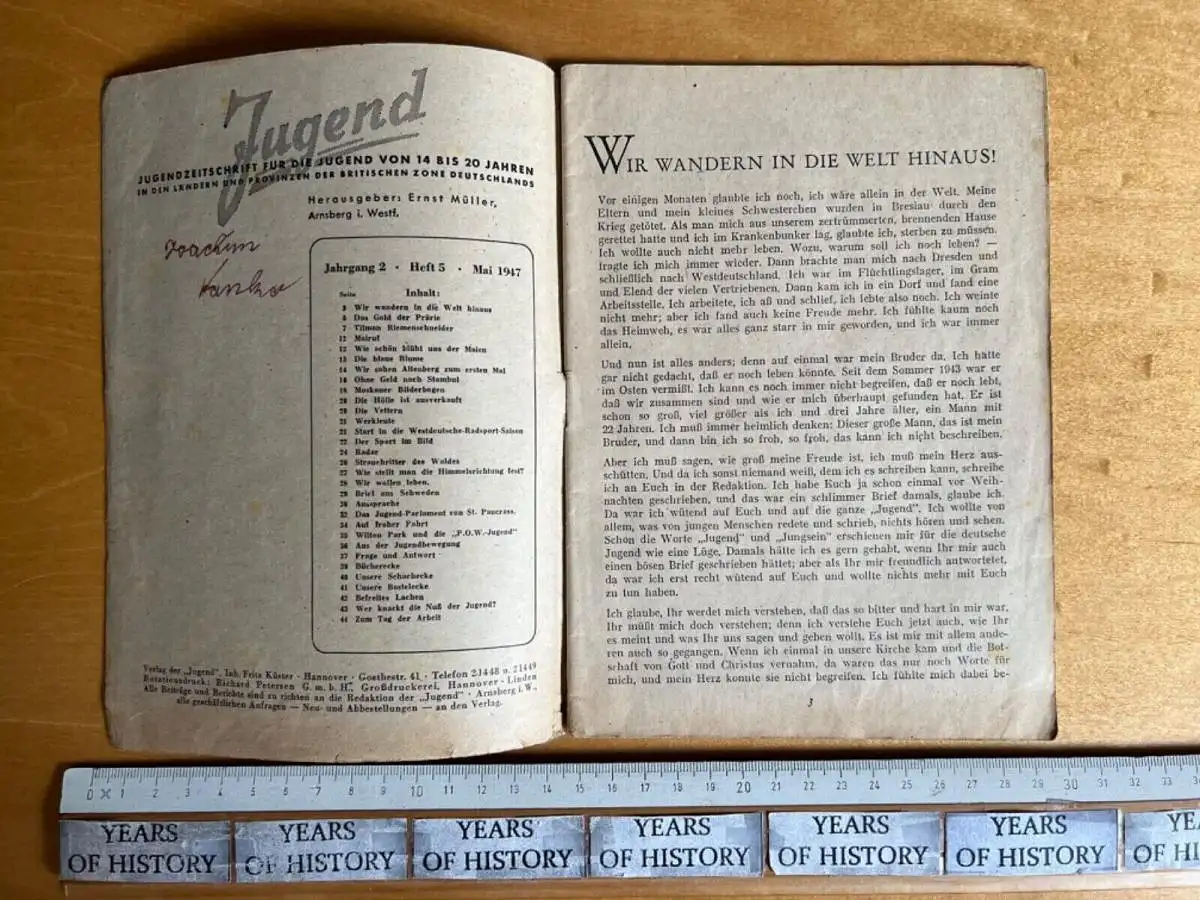 Jugend
JUGENDZEITSCHRIFT FÜR DIE JUGEND VON 14 BIS 20 JAHREN
IN DEN LÄNDERN UND PROVINZEN DER BRITISCHEN ZONE DEUTSCHLANDS
Herausgeber: Ernst Müller,
Arnsberg i. Westf.
Joachim
Jahrgang 2 · Heft 5 · Mai 1947
Seite Inhalt:
3 Wir wandern in die Welt hinaus
6 Das Gold der Prärie
7 Tilman Riemenschneider
11 Mairuf
12 Wie schön blüht uns der Maien
13 Die blaue Blume
14 Wir sahen Altenberg zum ersten Mal
16 Ohne Geld nach Stambul
18 Moskauer Bilderbogen
20 Die Hölle ist ausverkauft
20 Die Vettern
21 Werkleute
21 Start in die Westdeutsche-Radsport-Saison
22 Der Sport im Bild
24 Radar
26 Strauchritter des Waldes
27 Wie stellt man die Himmelsrichtung fest?
28 Wir wollen leben.
29 Brief aus Schweden
30 Aussprache
32 Das Jugend-Parlament von St. Pancrass.
34 Auf froher Fahrt
35 Wilton Park und die „P.O.W.-Jugend"
36 Aus der Jugendbewegung
37 Frage und Antwort
39 Bücherecke
40 Unsere Schachecke
41 Unsere Bastelecke
42 Befreites Lachen
43 Wer knackt die Nuß der Jugend?
44 Zum Tag der Arbeit
Verlag der „Jugend", Inh. Fritz Küster · Hannover · Goethestr. 41 · Telefon 23448 u. 21449
Rotationsdruck: Richard Petersen G. m. b. H., Großdruckerei, Hannover-Linden
Alle Beiträge und Berichte sind zu richten an die Redaktion der „Jugend" · Arnsberg i. W.,
alle geschäftlichen Anfragen — Neu- und Abbestellungen — an den Verlag.
WIR WANDERN IN DIE WELT HINAUS!
Vor einigen Monaten glaubte ich noch, ich wäre allein in der Welt. Meine
Eltern und mein kleines Schwesterchen wurden in Breslau durch den
Krieg getötet. Als man mich aus unserem zertrümmerten, brennenden Hause
gerettet hatte und ich im Krankenbunker lag, glaubte ich, sterben zu müssen.
Ich wollte auch nicht mehr leben. Wozu, warum soll ich noch leben? —
fragte ich mich immer wieder. Dann brachte man mich nach Dresden und
schließlich nach Westdeutschland. Ich war im Flüchtlingslager, im Gram
und Elend der vielen Vertriebenen. Dann kam ich in ein Dorf und fand eine
Arbeitsstelle. Ich arbeitete, ich aß und schlief, ich lebte also noch. Ich weinte
nicht mehr; aber ich fand auch keine Freude mehr. Ich fühlte kaum noch
das Heimweh, es war alles ganz starr in mir geworden, und ich war immer
allein.
Und nun ist alles anders; denn auf einmal war mein Bruder da. Ich hätte
gar nicht gedacht, daß er noch leben könnte. Seit dem Sommer 1943 war er
im Osten vermißt. Ich kann es noch immer nicht begreifen, daß er noch lebt,
daß wir zusammen sind und wie er mich überhaupt gefunden hat. Er ist
schon so groß, viel größer als ich und drei Jahre älter, ein Mann mit
22 Jahren. Ich muß immer heimlich denken: Dieser große Mann, das ist mein
Bruder, und dann bin ich so froh, so froh, das kann ich nicht beschreiben.
Aber ich muß sagen, wie groß meine Freude ist, ich muß mein Herz aus-
schütten. Und da ich sonst niemand weiß, dem ich es schreiben kann, schreibe
ich an Euch in der Redaktion. Ich habe Euch ja schon einmal vor Weih-
nachten geschrieben, und das war ein schlimmer Brief damals, glaube ich.
Da war ich wütend auf Euch und auf die ganze „Jugend". Ich wollte von
allem, was von jungen Menschen redete und schrieb, nichts hören und sehen.
Schon die Worte „Jugend" und „Jungsein" erschienen mir für die deutsche
Jugend wie eine Lüge. Damals hätte ich es gern gehabt, wenn Ihr mir auch
einen bösen Brief geschrieben hättet; aber als Ihr mir freundlich antwortetet,
da war ich erst recht wütend auf Euch und wollte nichts mehr mit Euch
zu tun haben.
Ich glaube, Ihr werdet mich verstehen, daß das so bitter und hart in mir war.
Ihr müßt mich doch verstehen; denn ich verstehe Euch jetzt auch, wie Ihr
es meint und was Ihr uns sagen und geben wollt. Es ist mir mit allem ande-
ren auch so gegangen. Wenn ich einmal in unsere Kirche kam und die Bot-
schaft von Gott und Christus vernahm, da waren das nur noch Worte für
mich, und mein Herz konnte sie nicht begreifen. Ich fühlte mich dabei be-
3
0 1 2 3 4 5 6 7 8 9 10 11 12 13 14 15 16 17 18 19 20 21 22 23 24 25 26 27 28 29 30 31 32 33
YEARS OF HISTORY
YEARS OF HISTORY
YEARS OF HISTORY
YEARS OF HISTORY
YEARS OF HISTORY
YEARS OF HISTORY